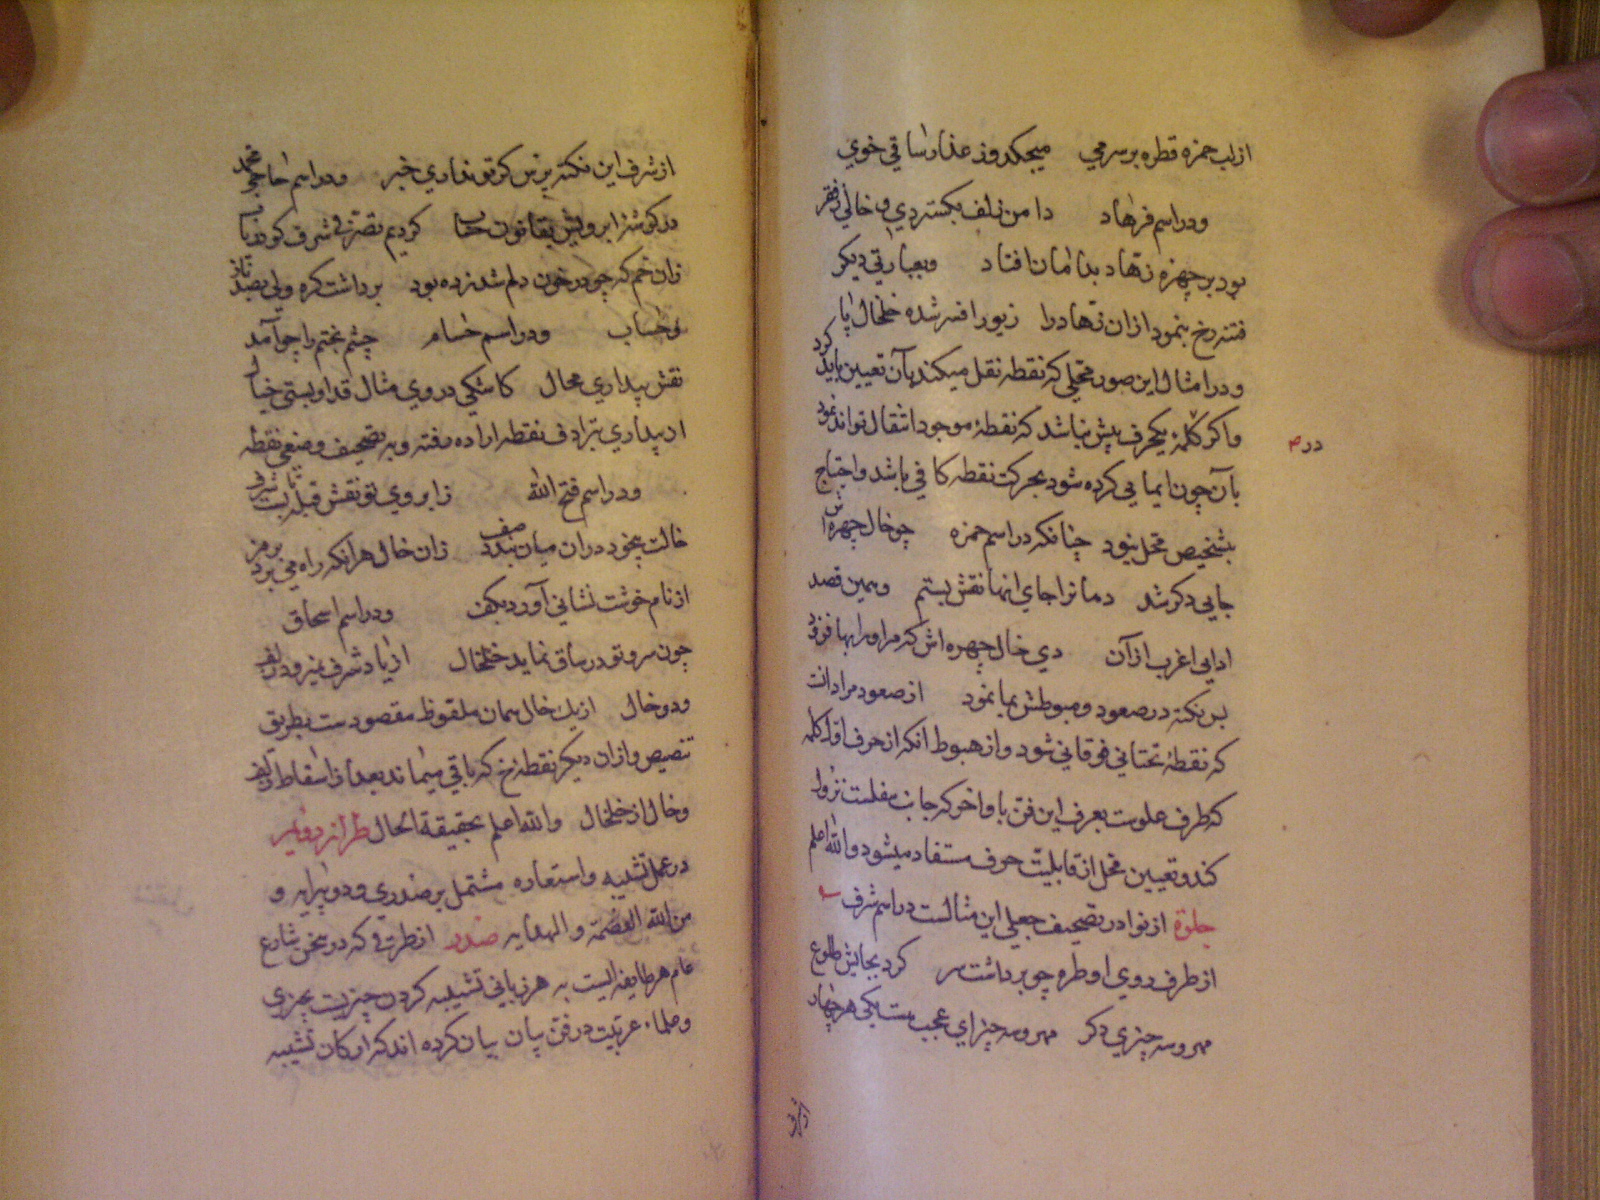 از لب حمزه قطره بر سر می میچکد وز عذار ساقی خوی
ودر اسم فرهاد دامن زلف بکستردی و خالی زقمر
بود بر چهره نهاد بدامان افتاد وبعبارتی دیکر
فتنه رخ بنمود ازان نهاد را زیور افسر شده خلخال پا
ودر امثال این صور محلی که نقطه نقل میکند بآن تعیین باید کرد
واکر کلمهٔ یکحرف بیش نباشد که نقطهٔ موجود انتقال تواند نمود
در م
بآن چون ایمایی کرده شود بحرکت نقطه کافی باشد واحتیاج
بتشخیص محل نبود چنانکه در اسم حمزه چو خال چهره اش
جایی دکر شد دمانرا جای انها نقش بستم وهمین قصد
ادایی اغرب از آن دی خال چهره اش که مرا ورا بها فزود
بس نکته در صعود وهبوطش بما نمود از صعود مراد انست
که نقطهٔ تحتانی فوقانی شود واز هبوط انکه از حرف اول کلمه
که طرف علوست بعرف این فن با واخر که جانب سفلست نزول
کند وتعیین محل از قابلیت حرف مستفاد میشود والله اعلم
جلوة از نوادر تصحیف جعلی این مثالست در اسم شرف
از طرف روی او طره چو برداشت سر کرد بجایش طلوع
مهر وسه چیزی دکر مهر وسه چیز ای عجب هست یکی هر چهار
از شرف
از شرف این نکته پرس کر تو نداری خبر ودر اسم حاجی محمد
در کوشهٔ ابرویش بقانون حساب کردیم تصرفی شرف کو دریاب
زان خم که چو در خون دلم شد زده بود برداشت کره ولی بصد ناز
وعتاب ودر اسم حسام چشم بختم را چو آمد
نقش بیداری محال کاشکی در وی مثال قد او بستی خیال
از بیداری بترادف نقطه اراده رفته وبه تصحیف وضعی نقطه
ودر اسم فتح الله ز ابروی تو نقش قبله بست
خالت بخود دران میان بندد صف زان خال هر انکه راه می برد برمز
از نام خوشت نشانی آورد بکف ودر اسم اسحاق
چون سرو تو در ساق نماید خلخال از یاد شرف نمیرود زلف
ودو خال از یک خال سمان ملفوظ مقصودست بطریق
تنصیص وازان دیکر نقطهٔ خ که باقی میماند بعد از اسقاط زلف
وخال از خلخال والله اعلم بحقیقة الحال طراز دویم
در عمل تشبیه واستعاره مشتمل بر صدری ودو پیرایه و
من الله العصمة والهدایه صدر از طرفی که در سخن شارع
عام هر طایفه ایست به هر زبانی تشبیه کردن چیزیست بچیزی
وعلماء عربیت در فن بیان بیان کرده اند که ارکان تشبیه